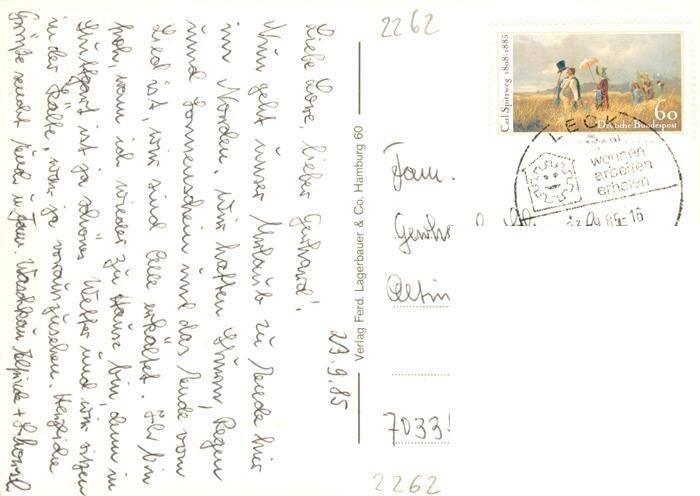 2262
Carl Spitzweg 1808-1885
60
Deutsche Bundespost
LECK
wohnen
arbeiten
erholen
23.09.85-16
23.9.85
Liebe Lore, lieber Gerhard!
Nun geht unser Urlaub zu Ende hier
im Norden. Wir hatten Sturm, Regen
und Sonnenschein und das Ende vom
Lied ist, wir sind alle erkältet. Ich bin
froh, wenn ich wieder zu Hause bin, denn in
Stuttgart ist ja schönes Wetter und wir sitzen
in der Kälte, war ja vorauszusehen. Herzliche
Grüße sendt Euch u. Fam.
Verlag Ferd. Lagerbauer & Co. Hamburg 60
Fam.
7033
2262